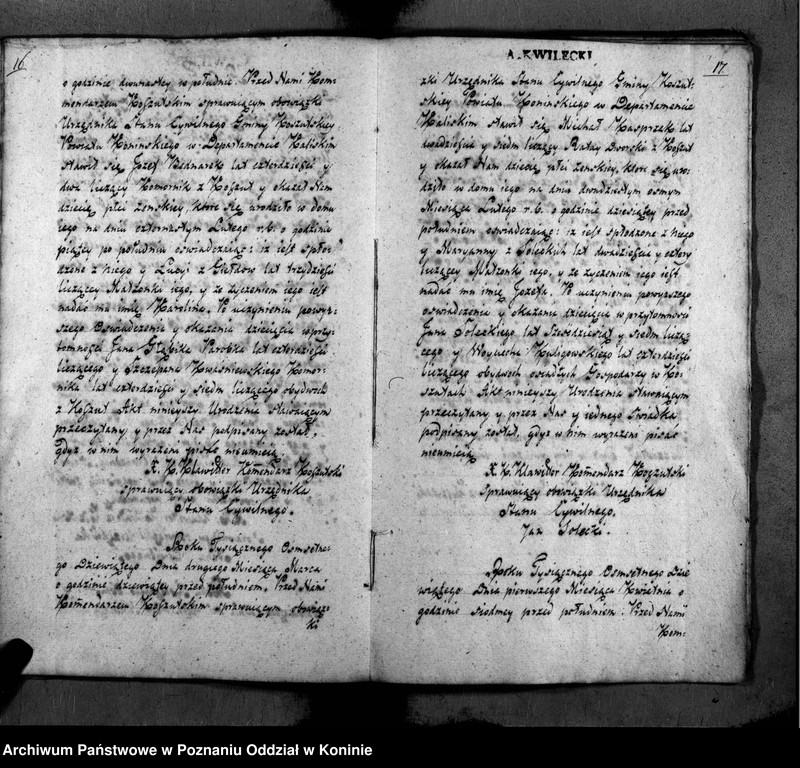 16
o godzinie dwunastey w południe. Przed Nami Kom-
mendarzem Koszutskim sprawuiącym obowiązki
Urzędnika Stanu Cywilnego Gminy Koszutskiey
Powiatu Konińskiego w Departamencie Kaliskim
stawił się Jozef Bednarek lat czterdzieści y
dwa liczący Komornik z Koszut y okazał Nam
dziecię płci żenskiey, ktore się urodziło w domu
iego na dniu czternastym Lutego r.b. o godzinie
piątey po południu oswiadczaiąc: iż iest spłor
dzone z niego y Lucyi z lat trzydzieści
liczącey Małżonki iego, y że życzeniem iego iest
nadać mu imię Karolina. Po uczynieniu powyż-
szego oswiadczenia y okazania dziecięcia w przy-
tomności Jana Głąbika Parobka lat czterdzieści
liczącego y Szczepana Kwasniewskiego Komor-
nika lat czterdzieści y siedm liczącego obydwoch
z Koszut Akt ninieyszy Urodzenia stawaiącym
przeczytany y przez Nas podpisany został,
gdyż w nim wyrażeni pisać nieumieią
X. K. Klawitter Komendarz Koszutski
sprawuiący obowiązki Urzędnika
Stanu Cywilnego.
Roku Tysiącznego Osmsetne-
go Dziewiątego Dnia drugiego Miesiąca Marca
o godzinie dziewiątey przed południem, Przed Nami
Komendarzem Koszutskim sprawuiącym obowiąz-
ki
A. KWILECKI
17
zki Urzędnika Stanu Cywilnego Gminy Koszut-
skiey Powiatu Konińskiego w Departamencie
Kaliskim stawił się Michał Kasprzak lat
dwadzieścia y siedm liczący Ratay Dworski z Koszut
y okazał Nam dziecię płci żenskiey, ktore się uro-
dziło w domu iego na dniu dwudziestym osmym
Miesiąca Lutego r.b. o godzinie dziesiątey przed
południem oswiadczaiąc: iż iest spłodzone z niego
y Maryanny z Soleckich lat dwadzieścia y cztery
liczącey Małżonki iego, y że życzeniem iego iest
nadać mu imię Jozefa. Po uczynieniu powyższego
oswiadczenia y okazaniu dziecięcia w przytomności
Jana Soleckiego lat szescdziesiąt y siedm liczą-
cego y Woyciecha Kuligowskiego lat czterdzieści
liczącego obydwoch osiadłych Gospodarzy w Ko-
szutach Akt ninieyszy Urodzenia stawaiącym
przeczytany y przez Nas y iednego Swiadka
podpisany został, gdyż w nim wyrażeni pisać
nieumieią
X. K. Klawitter Komendarz Koszutski
sprawuiący obowiązki Urzędnika
Stanu Cywilnego.
Jan Solecki.
Roku Tysiącznego Osmsetnego Dzie
wiątego Dnia pierwszego Miesiąca Kwietnia o
godzinie siodmey przed południem. Przed Nami
Kom-
Archiwum Państwowe w Poznaniu Oddział w Koninie